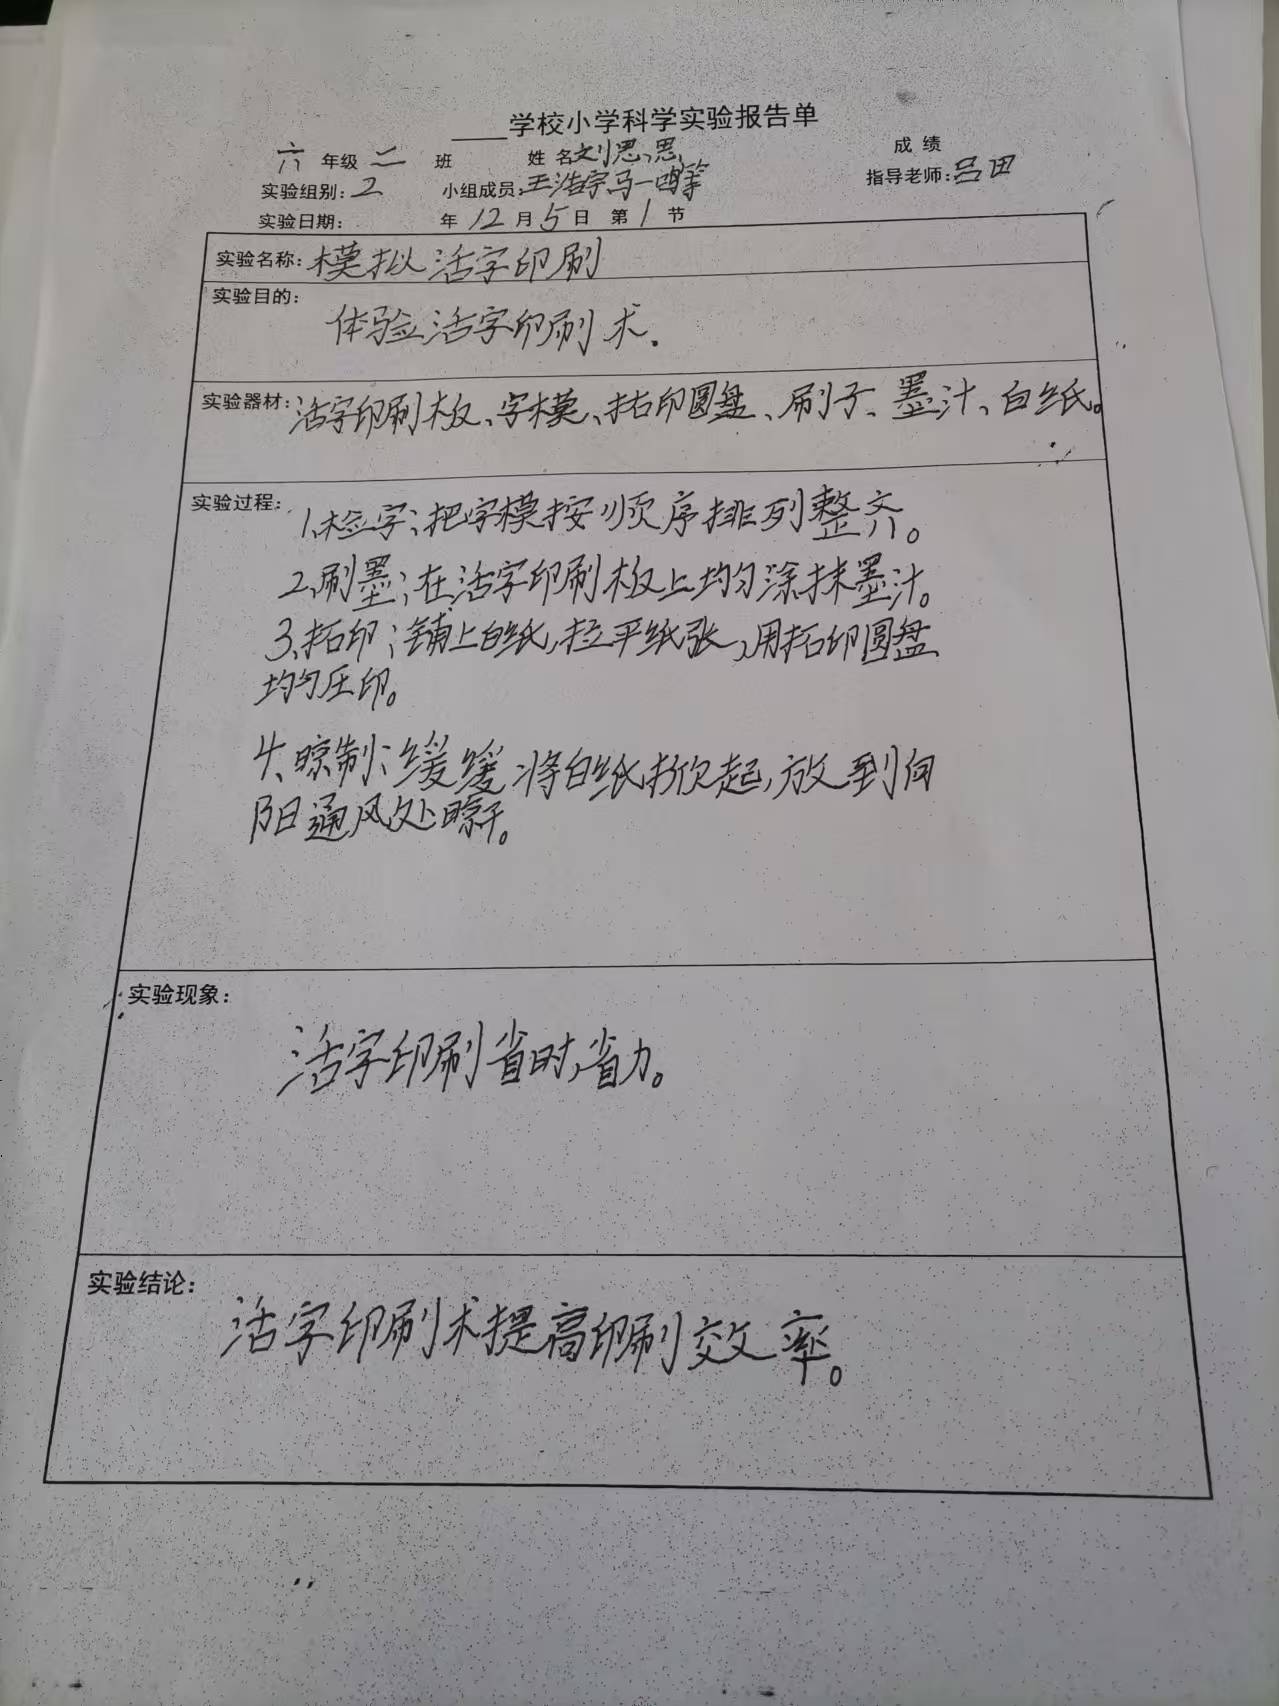 ____学校小学科学实验报告单
六 年级 二 班 姓 名 刘思思 成 绩
实验组别: 2 小组成员: 王浩宇马一鸣等 指导老师: 吕田
实验日期: 年 12 月 5 日 第 1 节
实验名称: 模拟活字印刷
实验目的:
体验活字印刷术.
实验器材: 活字印刷木板、字模、拓印圆盘、刷子、墨汁、白纸。
实验过程: 1、检字:把字模按顺序排列整齐。
2、刷墨:在活字印刷木板上均匀涂抹墨汁。
3、拓印:铺上白纸,拉平纸张,用拓印圆盘
均匀压印。
4、晾制:缓缓将白纸掀起,放到向
阳通风处晾干。
实验现象:
活字印刷省时,省力。
实验结论:
活字印刷术提高印刷效率。